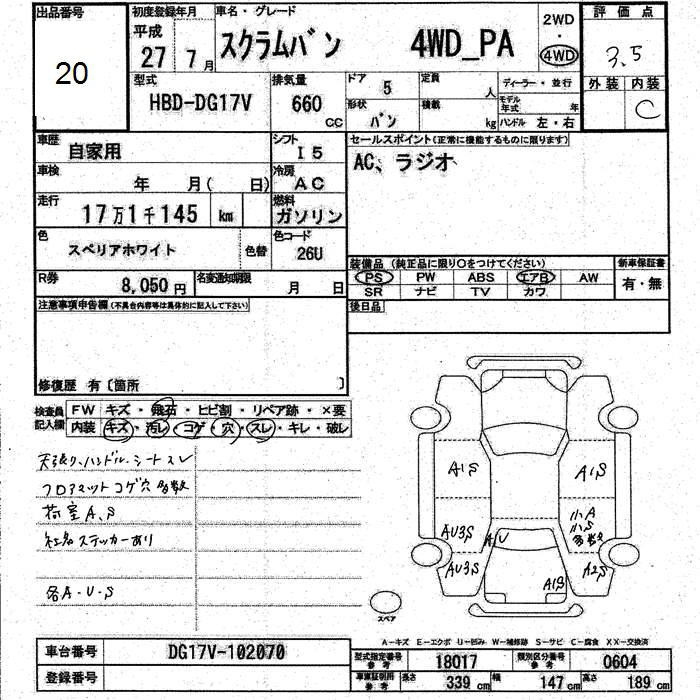 出品番号
20
初度登録年月
平成
27 7月
車名・グレード
スクラムバン 4WD_PA
2WD
・
4WD
評価点
3.5
外装 内装
C
型式
HBD-DG17V
排気量
660 CC
ドア 5
形状 バン
定員 人
積載 kg
ディーラー・並行
モデル年式 年
ハンドル 左・右
車歴
自家用
シフト
I 5
車検
年 月( 日)
冷房
AC
走行
17万1千145 km
燃料
ガソリン
色
スペリアホワイト
色替
色コード
26U
R券
8,050円
名変通知期限
月 日
セールスポイント(正常に機能するものに限ります)
AC、ラジオ
装備品 (純正品に限り○をつけてください)
新車保証書
PS PW ABS エアB AW
SR ナビ TV カワ
有・無
後日品
注意事項申告欄 (不具合内容等は具体的に記入して下さい)
修復歴 有〔箇所 〕
検査員記入欄
FW キズ・飛石・ヒビ割・リペア跡・×要
内装 キズ・汚レ・コゲ・穴・スレ・キレ・破レ
天張り、ハンドル、シートスレ
フロアマット コゲ穴 多数
荷室 A、S
社名ステッカーあり
各A・U・S
A1S
A1S
小A
小S
多数
AU3S
AU3S
A/U
A1B
A2S
スペア
A―キズ E―エクボ U―凹み W―補修跡 S―サビ C―腐食 XX―交換済
車台番号
DG17V-102070
登録番号
型式指定番号 参考
18017
類別区分番号 参考
0604
車車証制用 参考
長さ 339 cm
幅 147 cm
高さ 189 cm